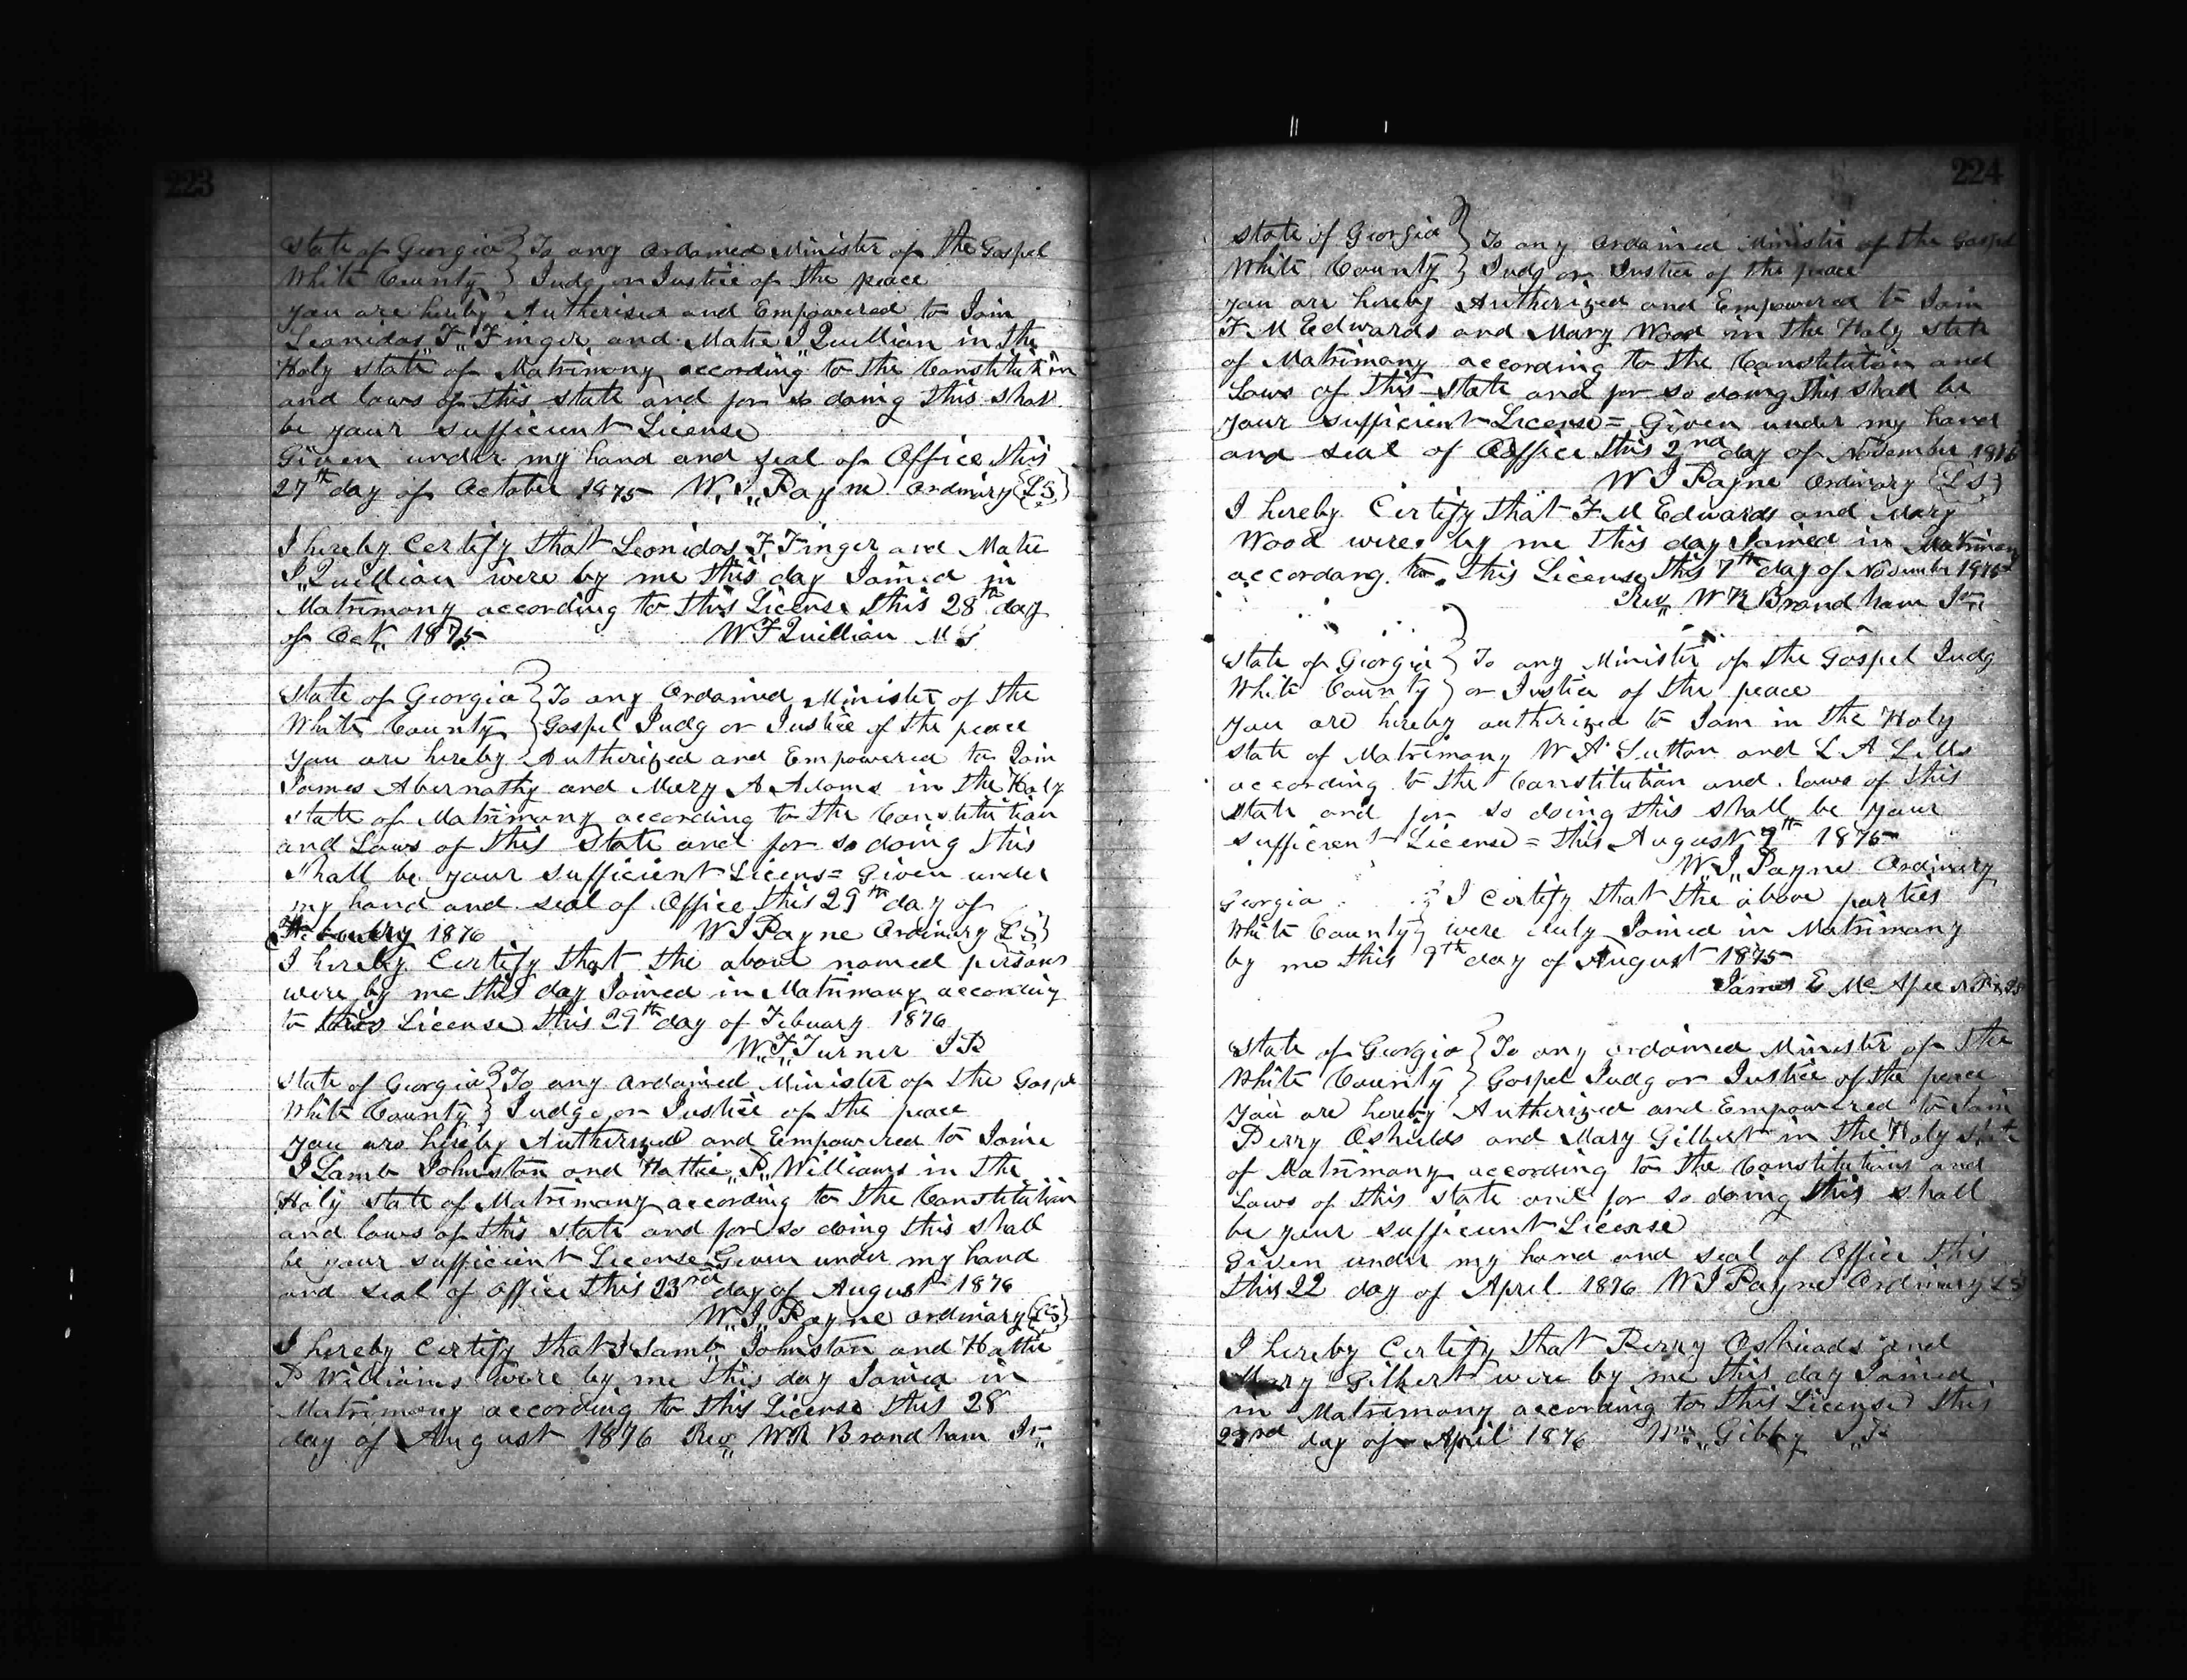 223
State of Georgia } To any Ordained Minister of the Gospel
White County } Judg or Justice of the peace
you are hereby Autherised and Empowered to Join
Leonidas F. Finger and Matie J Quillian in the
Holy state of Matrimony according to the Constitution
and laws of this state and for so doing this shall
be your sufficient License
Given under my hand and seal of Office this
27th day of October 1875 W. J. Payne Ordinary (LS)
I hereby Certify that Leonidas F. Finger and Matie
J. Quillian were by me this day Joined in
Matrimony according to this License this 28th day
of Oct. 1875 W F Quillian M G
State of Georgia } To any Ordained Minister of the
White County } Gospel Judg or Justice of the peace
you are hereby Autherized and Empowered to Join
James Abernathy and Mary A Adams in the Holy
state of Matrimony according to the Constitution
and Laws of this State and for so doing this
shall be your sufficient Licens = Given under
my hand and seal of Office this 29th day of
1876 W J Payne Ordinary (LS)
I hereby Certify that the above named persons
were by me this day Joined in Matrimony according
to License this 29th day of Febuary 1876
W. F. Turner J P
State of Georgia } To any Ordained Minister of the Gospel
White County } Judge or Justice of the peace
you are hereby Autherized and Eempowered to Joine
J Lamb Johnston and Hattie P. Williams in the
Holy state of Matrimony according to the Constitution
and laws of this state and for so doing this shall
be your sufficient License Given under my hand
and seal of office this 23rd day of August 1876
W. J. Payne ordinary (LS)
I hereby Certify that J Lamb Johnston and Hattie
P Williams were by me this day Joined in
Matrimony according to this License this 28
day of August 1876 Rev W R Brandham Jr
224
State of Georgia } To any Ordained Minister of the Gospel
White County } Judg or Justice of the peace
you are hereby Autherized and Empowered to Join
F. M Edwards and Mary Wood in the Holy state
of Matrimony according to the Constitution and
Laws of this State and for so doing this shall be
your sufficient License = Given under my hand
and seal of Office this 2nd day of November
W J Payne Ordinary (LS)
I hereby Certify that F. M Edwards and Mary
Wood were by me this day Joined in Matrimony
accordang to this License this 7th day of November 1875
Rev W R Brandham Jr
State of Georgia } To any Minister of the Gospel Judg
White County } or Justice of the peace
you are hereby autherized to Join in the Holy
state of Matrimony W A Sutton and L A
according to the Constitution and laws of this
state and for so doing this shall be your
sufficient License = this August 9th 1875
W. J. Payne Ordinary
Georgia } I Certify that the above parties
White County } were duly Joined in Matrimony
by me this 9th day of August 1875
James E McAfee
State of Georgia } To any ordained Minister of the
White County } Gospel Judg or Justice of the peace
you are hereby Autherized and Empowered to Join
Perry Oshields and Mary Gilbert in the Holy state
of Matrimony according to the Constitutions and
Laws of this state and for so doing this shall
be your sufficient License
given under my hand and seal of Office this
this 22 day of April 1876 W J Payne Ordinary LS
I hereby Certify that Perry and
Mary Gilbert were by me this day Joined
in Matrimony according to this License this
23rd day of April 1876 Wm Gibby